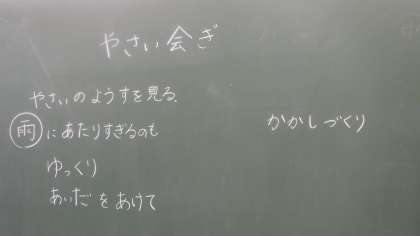 やさい会ぎ
やさいのようすを見る.
雨にあたりすぎるのも
ゆっくり
あいだをあけて
かかしづくり